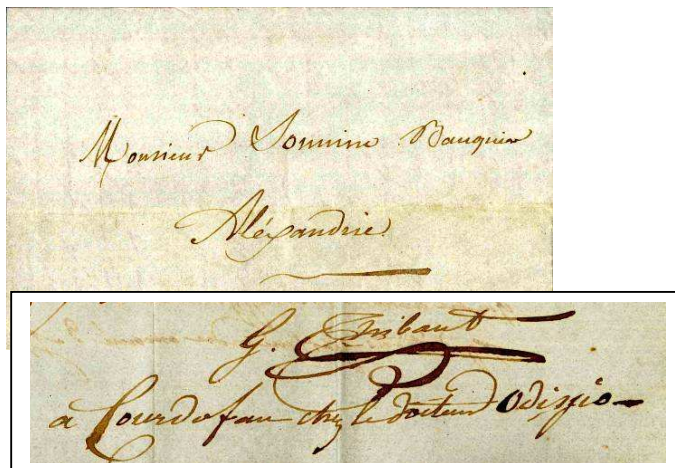 Monsieur Bauquier
Aléxandrie
G. Thibaut
a Courdofan chez le docteur